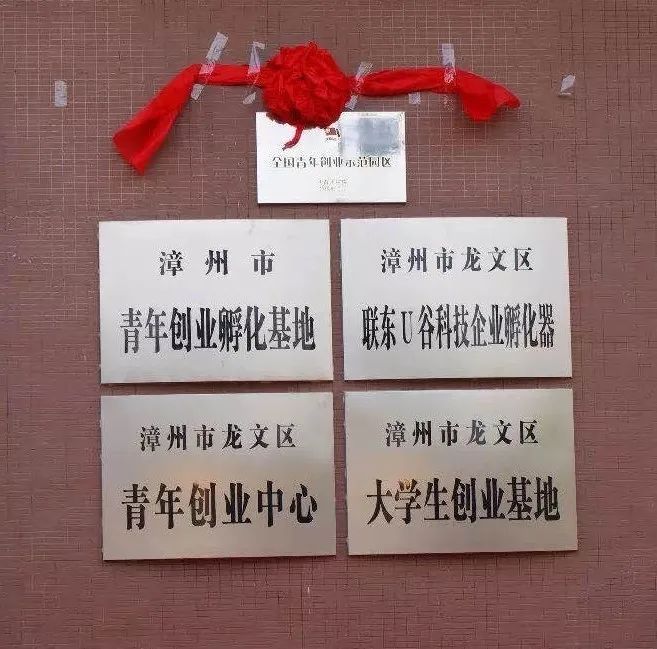 全国青年创业示范园区
漳州市
青年创业孵化基地
漳州市龙文区
联东U谷科技企业孵化器
漳州市龙文区
青年创业中心
漳州市龙文区
大学生创业基地